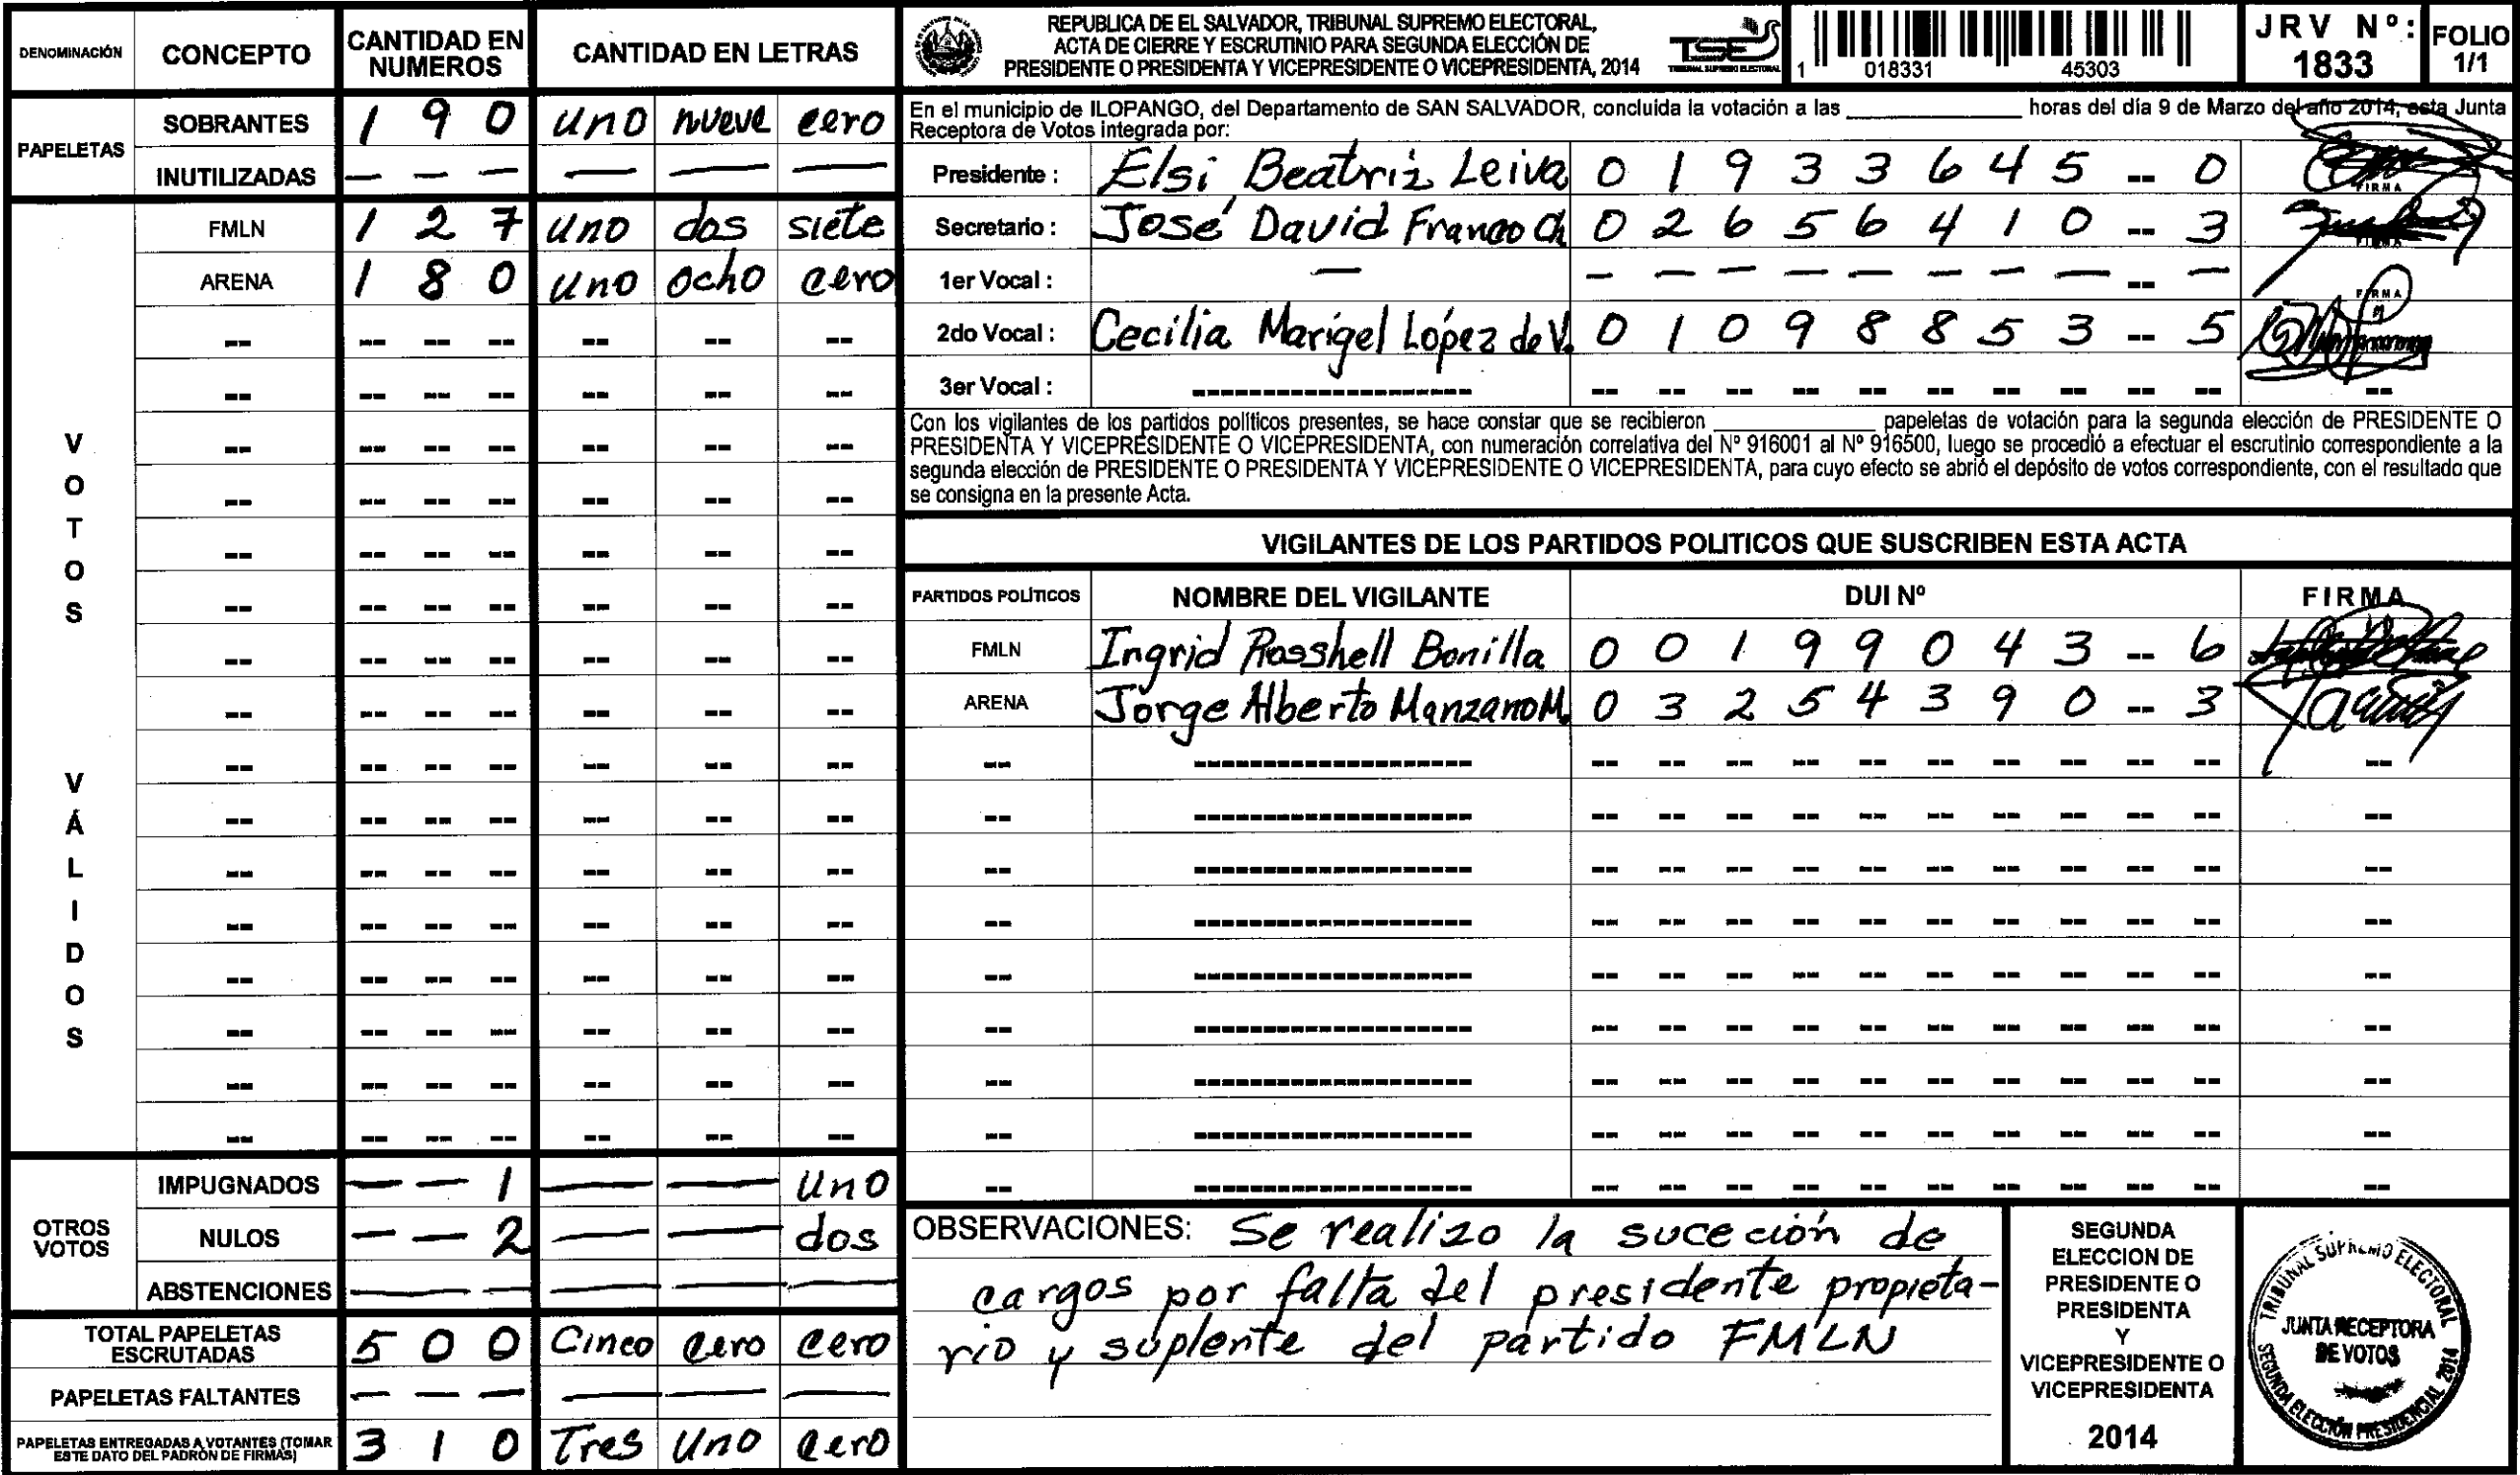 DENOMINACIÓN CONCEPTO CANTIDAD EN NUMEROS CANTIDAD EN LETRAS
PAPELETAS
SOBRANTES 1 9 0 uno nueve cero
INUTILIZADAS — — — — — —
VOTOS VÁLIDOS
FMLN 1 2 7 uno dos siete
ARENA 1 8 0 uno ocho cero
OTROS VOTOS
IMPUGNADOS — — 1 — — uno
NULOS — — 2 — — dos
ABSTENCIONES — — — — — —
TOTAL PAPELETAS ESCRUTADAS 5 0 0 Cinco cero cero
PAPELETAS FALTANTES — — — — — —
PAPELETAS ENTREGADAS A VOTANTES (TOMAR ESTE DATO DEL PADRÓN DE FIRMAS) 3 1 0 Tres uno cero
REPUBLICA DE EL SALVADOR, TRIBUNAL SUPREMO ELECTORAL,
ACTA DE CIERRE Y ESCRUTINIO PARA SEGUNDA ELECCIÓN DE
PRESIDENTE O PRESIDENTA Y VICEPRESIDENTE O VICEPRESIDENTA, 2014
TSE
TRIBUNAL SUPREMO ELECTORAL
1 018331 45303
JRV Nº: 1833
FOLIO 1/1
En el municipio de ILOPANGO, del Departamento de SAN SALVADOR, concluida la votación a las ________ horas del día 9 de Marzo del año 2014, esta Junta
Receptora de Votos integrada por:
Presidente : Elsi Beatriz Leiva 0 1 9 3 3 6 4 5 -- 0 FIRMA
Secretario : José David Franco Ch 0 2 6 5 6 4 1 0 -- 3
1er Vocal : — — — — — — — — — -- — FIRMA
2do Vocal : Cecilia Marigel López de V. 0 1 0 9 8 8 5 3 -- 5
3er Vocal : -- -- -- -- -- -- -- -- -- -- --
Con los vigilantes de los partidos políticos presentes, se hace constar que se recibieron ________ papeletas de votación para la segunda elección de PRESIDENTE O
PRESIDENTA Y VICEPRESIDENTE O VICEPRESIDENTA, con numeración correlativa del Nº 916001 al Nº 916500, luego se procedió a efectuar el escrutinio correspondiente a la
segunda elección de PRESIDENTE O PRESIDENTA Y VICEPRESIDENTE O VICEPRESIDENTA, para cuyo efecto se abrió el depósito de votos correspondiente, con el resultado que
se consigna en la presente Acta.
VIGILANTES DE LOS PARTIDOS POLITICOS QUE SUSCRIBEN ESTA ACTA
PARTIDOS POLÍTICOS NOMBRE DEL VIGILANTE DUI Nº FIRMA
FMLN Ingrid Rosshell Bonilla 0 0 1 9 9 0 4 3 -- 6
ARENA Jorge Alberto Manzano M. 0 3 2 5 4 3 9 0 -- 3
OBSERVACIONES: Se realizo la suceción de
cargos por falta del presidente propieta-
rio y suplente del partido FMLN
SEGUNDA
ELECCION DE
PRESIDENTE O
PRESIDENTA
Y
VICEPRESIDENTE O
VICEPRESIDENTA
2014
TRIBUNAL SUPREMO ELECTORAL
JUNTA RECEPTORA
DE VOTOS
SEGUNDA ELECCIÓN PRESIDENCIAL 2014